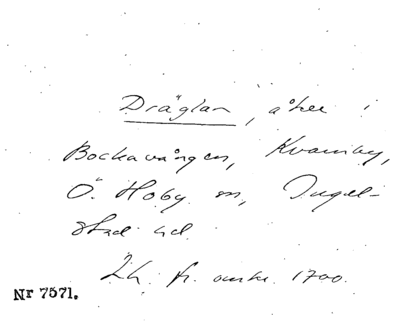 Dräglan, åker i
Bockavången, Kvarnby,
Ö. Hoby sn, Ingel-
stad hd.
Lh. fr. omkr. 1700.
Nr 7571.